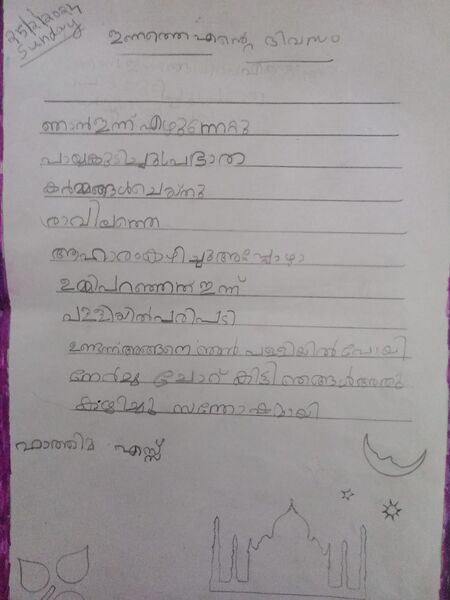 25/2/2024
Sunday
ഇന്നത്തെ എൻ്റെ ദിവസം
ഞാൻ ഇന്ന് എഴുന്നേറ്റു
ചായകുടിച്ചു പ്രഭാത
കർമ്മങ്ങൾ ചെയ്തു
രാവിലത്തെ
ആഹാരം കഴിച്ചു അപ്പോഴാ
ഉമ്മി പറഞ്ഞത് ഇന്ന്
പള്ളിയിൽ പരിപടി
ഉണ്ടന്ന് അങ്ങനെ ഞൻ പള്ളിയിൽ പോയി
നേർച്ച ചോറ് കിട്ടി ഞങ്ങൾ അതു
കഴിച്ചു സന്തോഷമായി
ഫാത്തിമ എസ്സ്